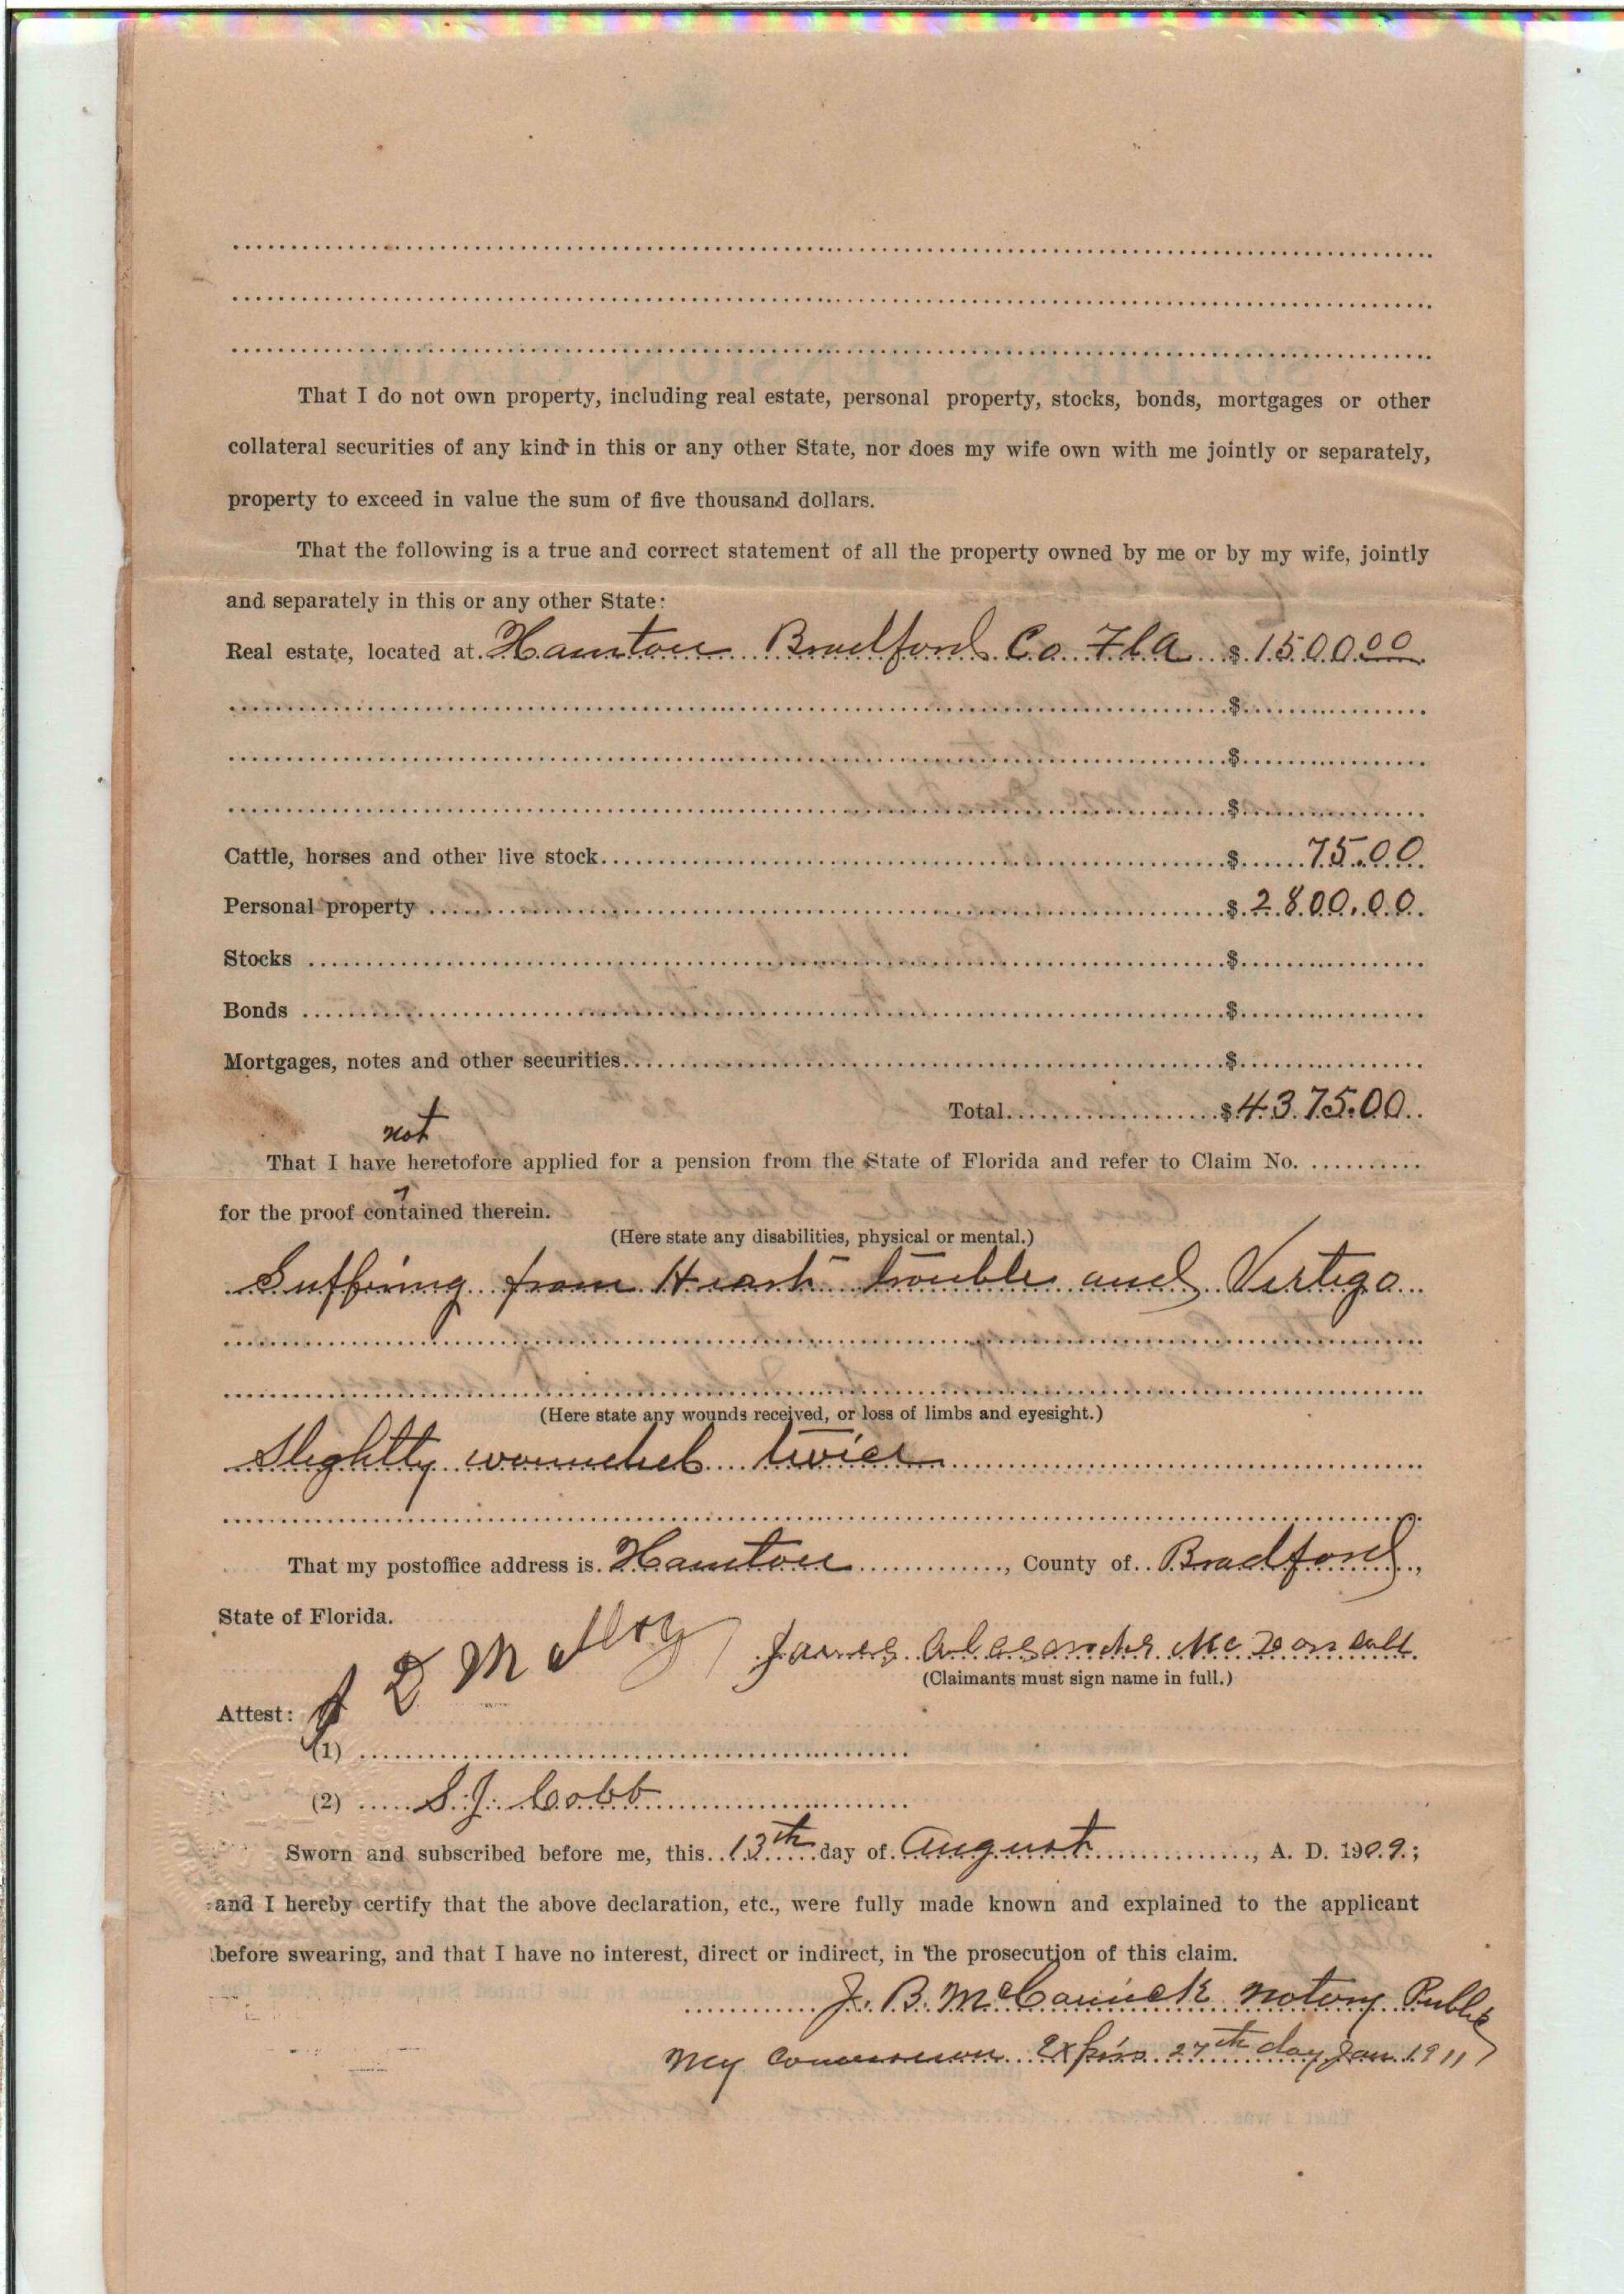 That I do not own property, including real estate, personal property, stocks, bonds, mortgages or other
collateral securities of any kind in this or any other State, nor does my wife own with me jointly or separately,
property to exceed in value the sum of five thousand dollars.
That the following is a true and correct statement of all the property owned by me or by my wife, jointly
and separately in this or any other State:
Real estate, located at Hamton Bradford Co. Fla $ 1500.00
$
$
$
Cattle, horses and other live stock $ 75.00
Personal property $ 2800.00
Stocks $
Bonds $
Mortgages, notes and other securities $
Total $ 4375.00
not
That I have heretofore applied for a pension from the State of Florida and refer to Claim No.
for the proof contained therein.
(Here state any disabilities, physical or mental.)
Suffering from Heart trouble and Vertigo
(Here state any wounds received, or loss of limbs and eyesight.)
Slightly wounded twice
That my postoffice address is Hamton, County of Bradford,
State of Florida.
James Alexander
(Claimants must sign name in full.)
Attest:
(1)
(2) S. J. Cobb
Sworn and subscribed before me, this 13th day of August, A. D. 1909;
and I hereby certify that the above declaration, etc., were fully made known and explained to the applicant
before swearing, and that I have no interest, direct or indirect, in the prosecution of this claim.
J. B. Notary Public
My Commission Expires 27th day Jan. 1911